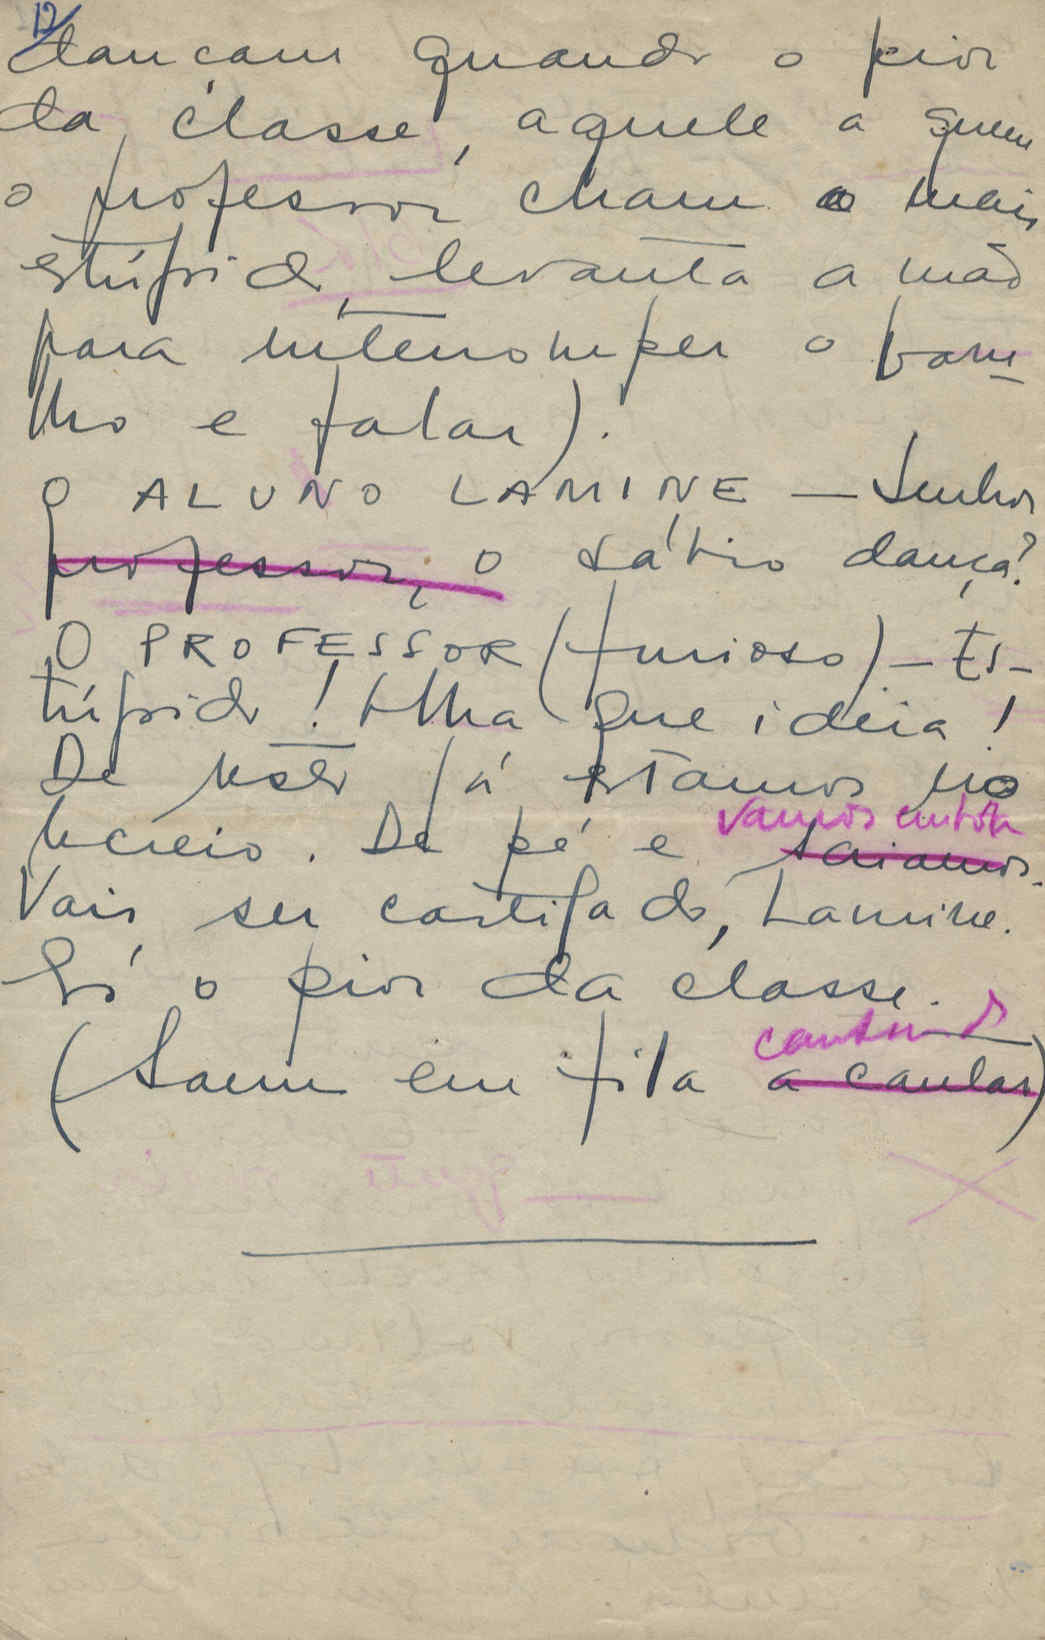 12
dançam quando o pior
da classe, aquele a quem
o professor chama o mais
estúpido, levanta a mão
para interromper o bara-
lho e falar).
O ALUNO LAMINE — Senhor
professor, o sábio dança?
O PROFESSOR (furioso) — Es-
túpido! Olha que ideia!
De resto já estamos no
recreio. De pé e saiamos.
vamos embora
Vais ser castigado, Lamine.
És o pior da classe.
cantando
(Saem em fila a cantar)